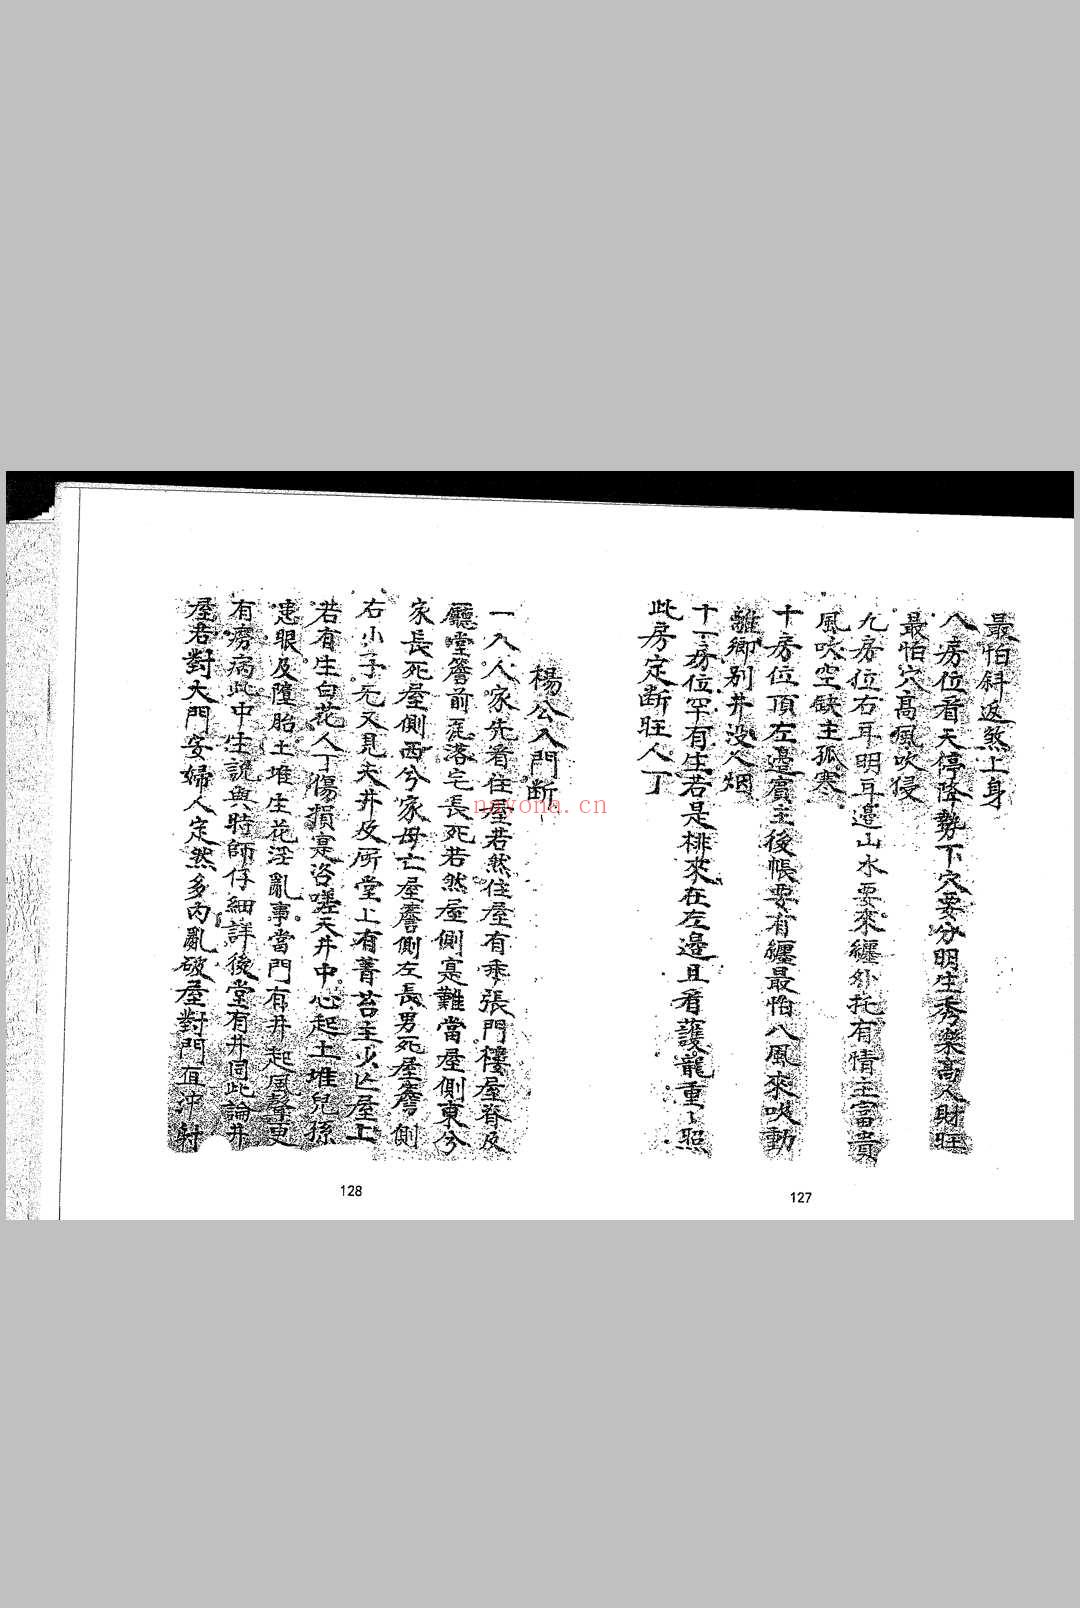 最怕斜返煞上身
八房位看天停降勢下穴要分明生秀案高人財旺
最怕穴高風吹侵
九房位右耳明耳邊山水要來纏外托有情主富貴
風吹空缺主孤寒
十房位頂左邊賓主後帳要有纏最怕八風來吹動
離鄉別井没人烟
十一房位罕有生若是椛來在左邊且看護龍重〻照
此房定断旺人丁
127
楊公入門断
一入人家先看住屋若然住屋有乖張門樓屋脊及
廳堂簷前崖落宅長死若然屋側寔難當屋側東兮
家長死屋側西兮家母亡屋簷側左長男死屋簷側
右小子兇又見天井及所堂上有菁苔主火亡屋上
若有生白花人丁傷損寔咨嗟天井中心起土堆兒孫
患眼及墮胎土堆生花淫亂事當門有井起風聲更
有癆病此中生說與時師仔細詳後堂有井同此論井
屋若對大門安婦人定然多內亂破屋對門直沖射
128
nayona.cn